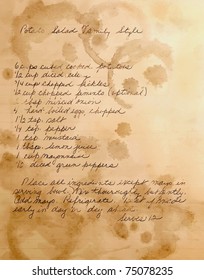 Potato Salad Family Style
6 cups cubed cooked potatoes
1/2 cup diced celery
1/4 cup chopped pickles
1/4 cup chopped pimento (optional)
2 tbsp minced onion
3 hard boiled eggs chopped
1 1/2 tsp salt
1/4 tsp pepper
1 tsp mustard
1 tbsp. lemon juice
1 cup mayonnaise
1/2 diced green peppers
Place all ingredients except mayo in
serving bowl. Mix thoroughly but gently.
Add mayo. Refrigerate.
early in day or day
Serves 12
shutterstock
IMAGE ID: 75078235
www.shutterstock.com